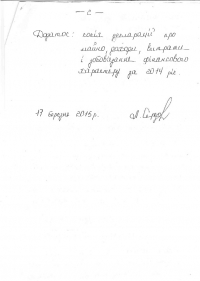 – 2 –
Додаток: копія декларації про
майно, доходи, витрати
і зобов'язання фінансового
характеру за 2014 рік.
17 березня 2015 р.